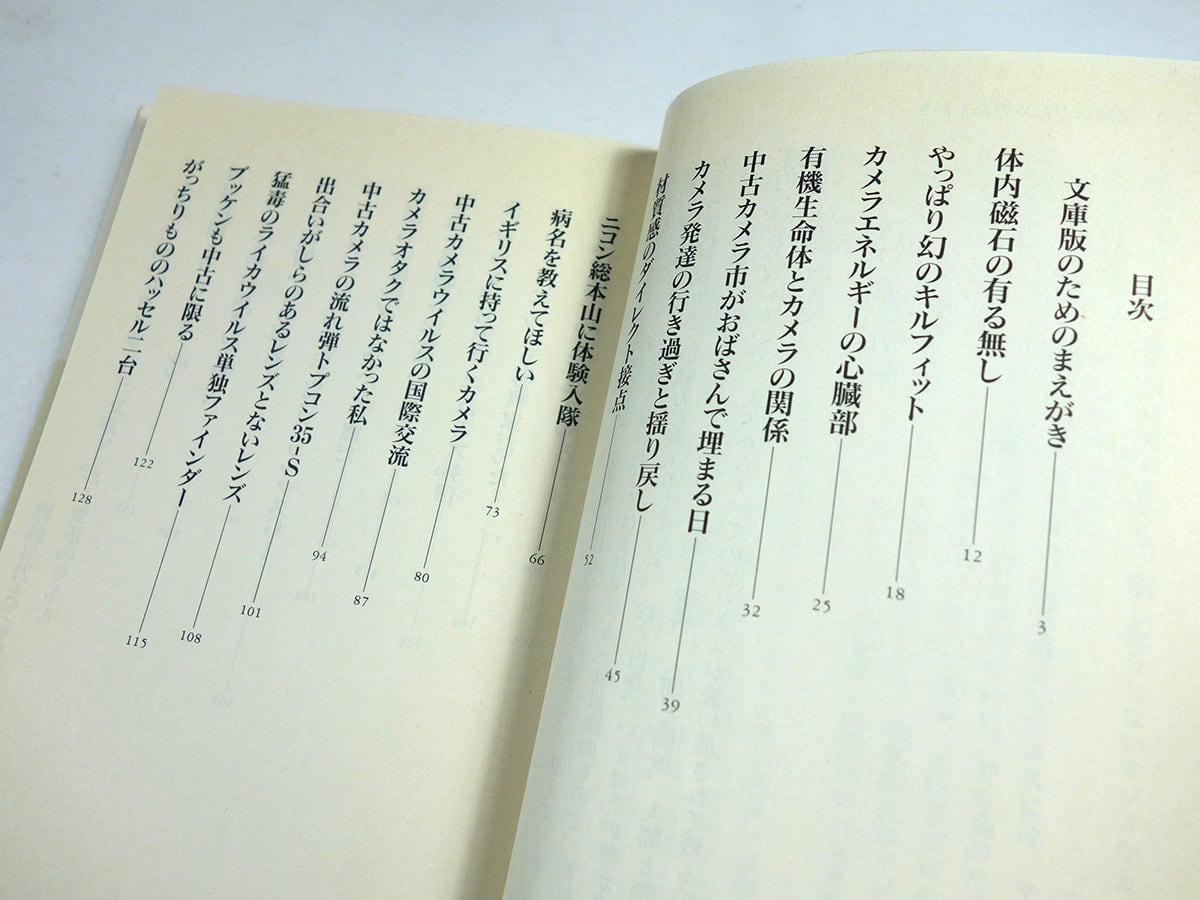 目次
文庫版のためのまえがき 3
体内磁石の有る無し 12
やっぱり幻のキルフィット 18
カメラエネルギーの心臓部 25
有機生命体とカメラの関係 32
中古カメラ市がおばさんで埋まる日 39
カメラ発達の行き過ぎと揺り戻し 45
材質感のダイレクト接点 52
ニコン総本山に体験入隊 66
病名を教えてほしい 73
イギリスに持って行くカメラ 80
中古カメラウイルスの国際交流 87
カメラオタクではなかった私 94
中古カメラの流れ弾トプコン35-S 101
出合いがしらのあるレンズとないレンズ 108
猛毒のライカウイルス単独ファインダー 115
ブッケンも中古に限る 122
がっちりもののハッセル二台 128